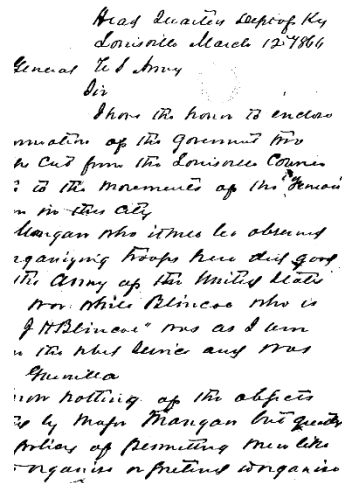 Head Quarters Dept of Ky
Louisville March 12" 1866
General U S Army
Sir
I have the honor to enclose
rmation of the Government two
Cut from the Louisville Courier
to the movements of the "Fenian
in this City
Mangan who it will be observed
rganizing troops here did good
the Army of the United States
War while Blincoe who is
J H Blincoe" was as I am
the rebel service and was
Guerilla
now nothing of the objects
by Major Mangan but
policy of permitting men like
organise or pretend to organise